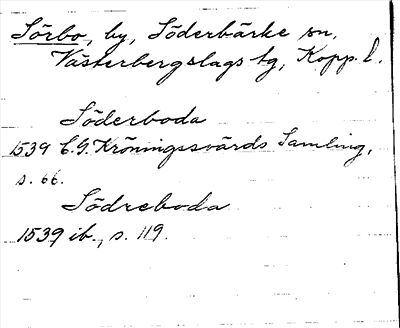 Sörbo, by, Söderbärke sn,
Västerbergslags tg, Kopp. l.
Söderboda
1539 C.G. Kröningssvärds Samling,
s. 66.
Södreboda
1539 ib., s. 119.